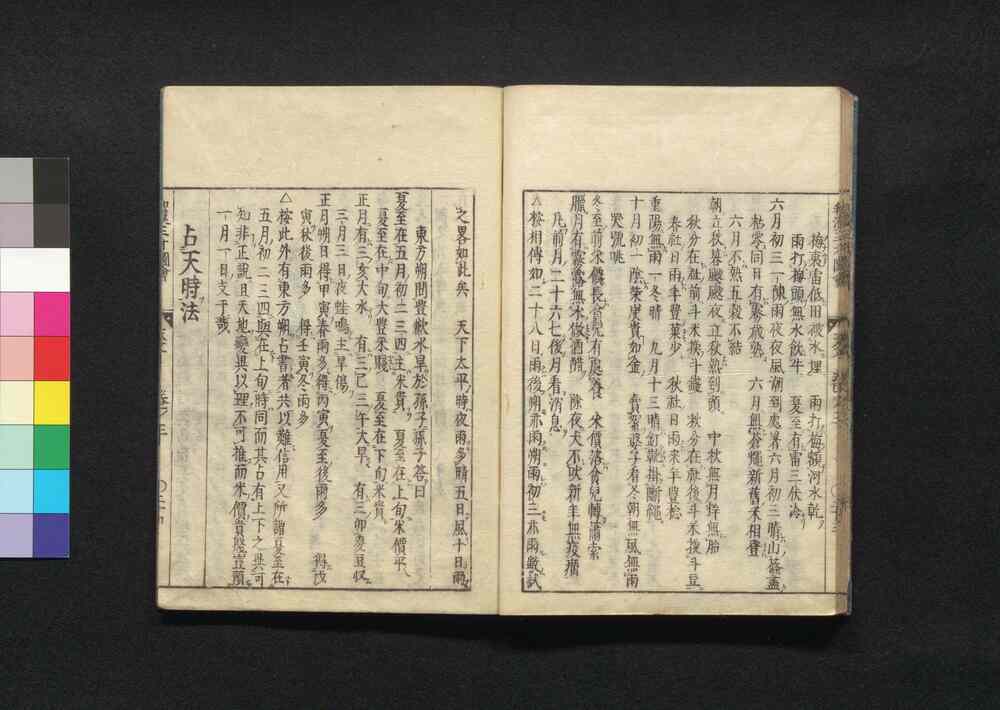 梅裏雷低田被水埋　雨打梅額河水乾
雨打梅頭無水飲牛　夏至有雷三伏冷
六月初三一陣雨夜夜風潮到處暑六月初三晴山篠盡
枯零同日有霧歳熟　六月無蒼蠅新舊米相登
六月不熱五穀不結
朝立秋暮颼颼夜立秋熱到頭　中秋無月蚌無胎
秋分在社前斗米換斗錢　秋分在社後斗米換斗豆
春社日雨年豐菓少　秋社日雨来年豊稔
重陽無雨一冬晴　九月十三晴釘靴掛斷繩
十月初一陰柴炭貴如金　賣絮婆子看冬朝無風無雨
哭號咷
冬至前米價長貧兒有處養　米價落貧兒轉蕭索
臘月有霧露無水做酒醋　除夜犬不吠新年無疫癘
凡前月二十六七後月看消息
△按相傳如二十八日雨後朔亦雨朔雨初三亦雨厳試
之畧如此矣　天下太平時夜雨多晴五日風十日雨
東方朔問豊歉水旱於孫子孫子荅曰
夏至在五月初二三四主米貴　夏至在上旬米價平
夏至在中旬大豊米賤　夏至在下旬米貴
正月有三亥大水　有三巳三午大旱　有三卯麦豆収
三月三日夜蛙鳴主旱傷
正月朔日得甲寅春雨多得丙寅夏至後雨多　得戊
寅秋後雨多　得壬寅冬雨多
△按此外有東方朔占書者共以難信用又所謂夏至在
五月初二三四與在上旬時同而其占有上下之異可
知非正説且天地變異以理不可推而米價貴賤豈預
一月一日支干哉
占天時法